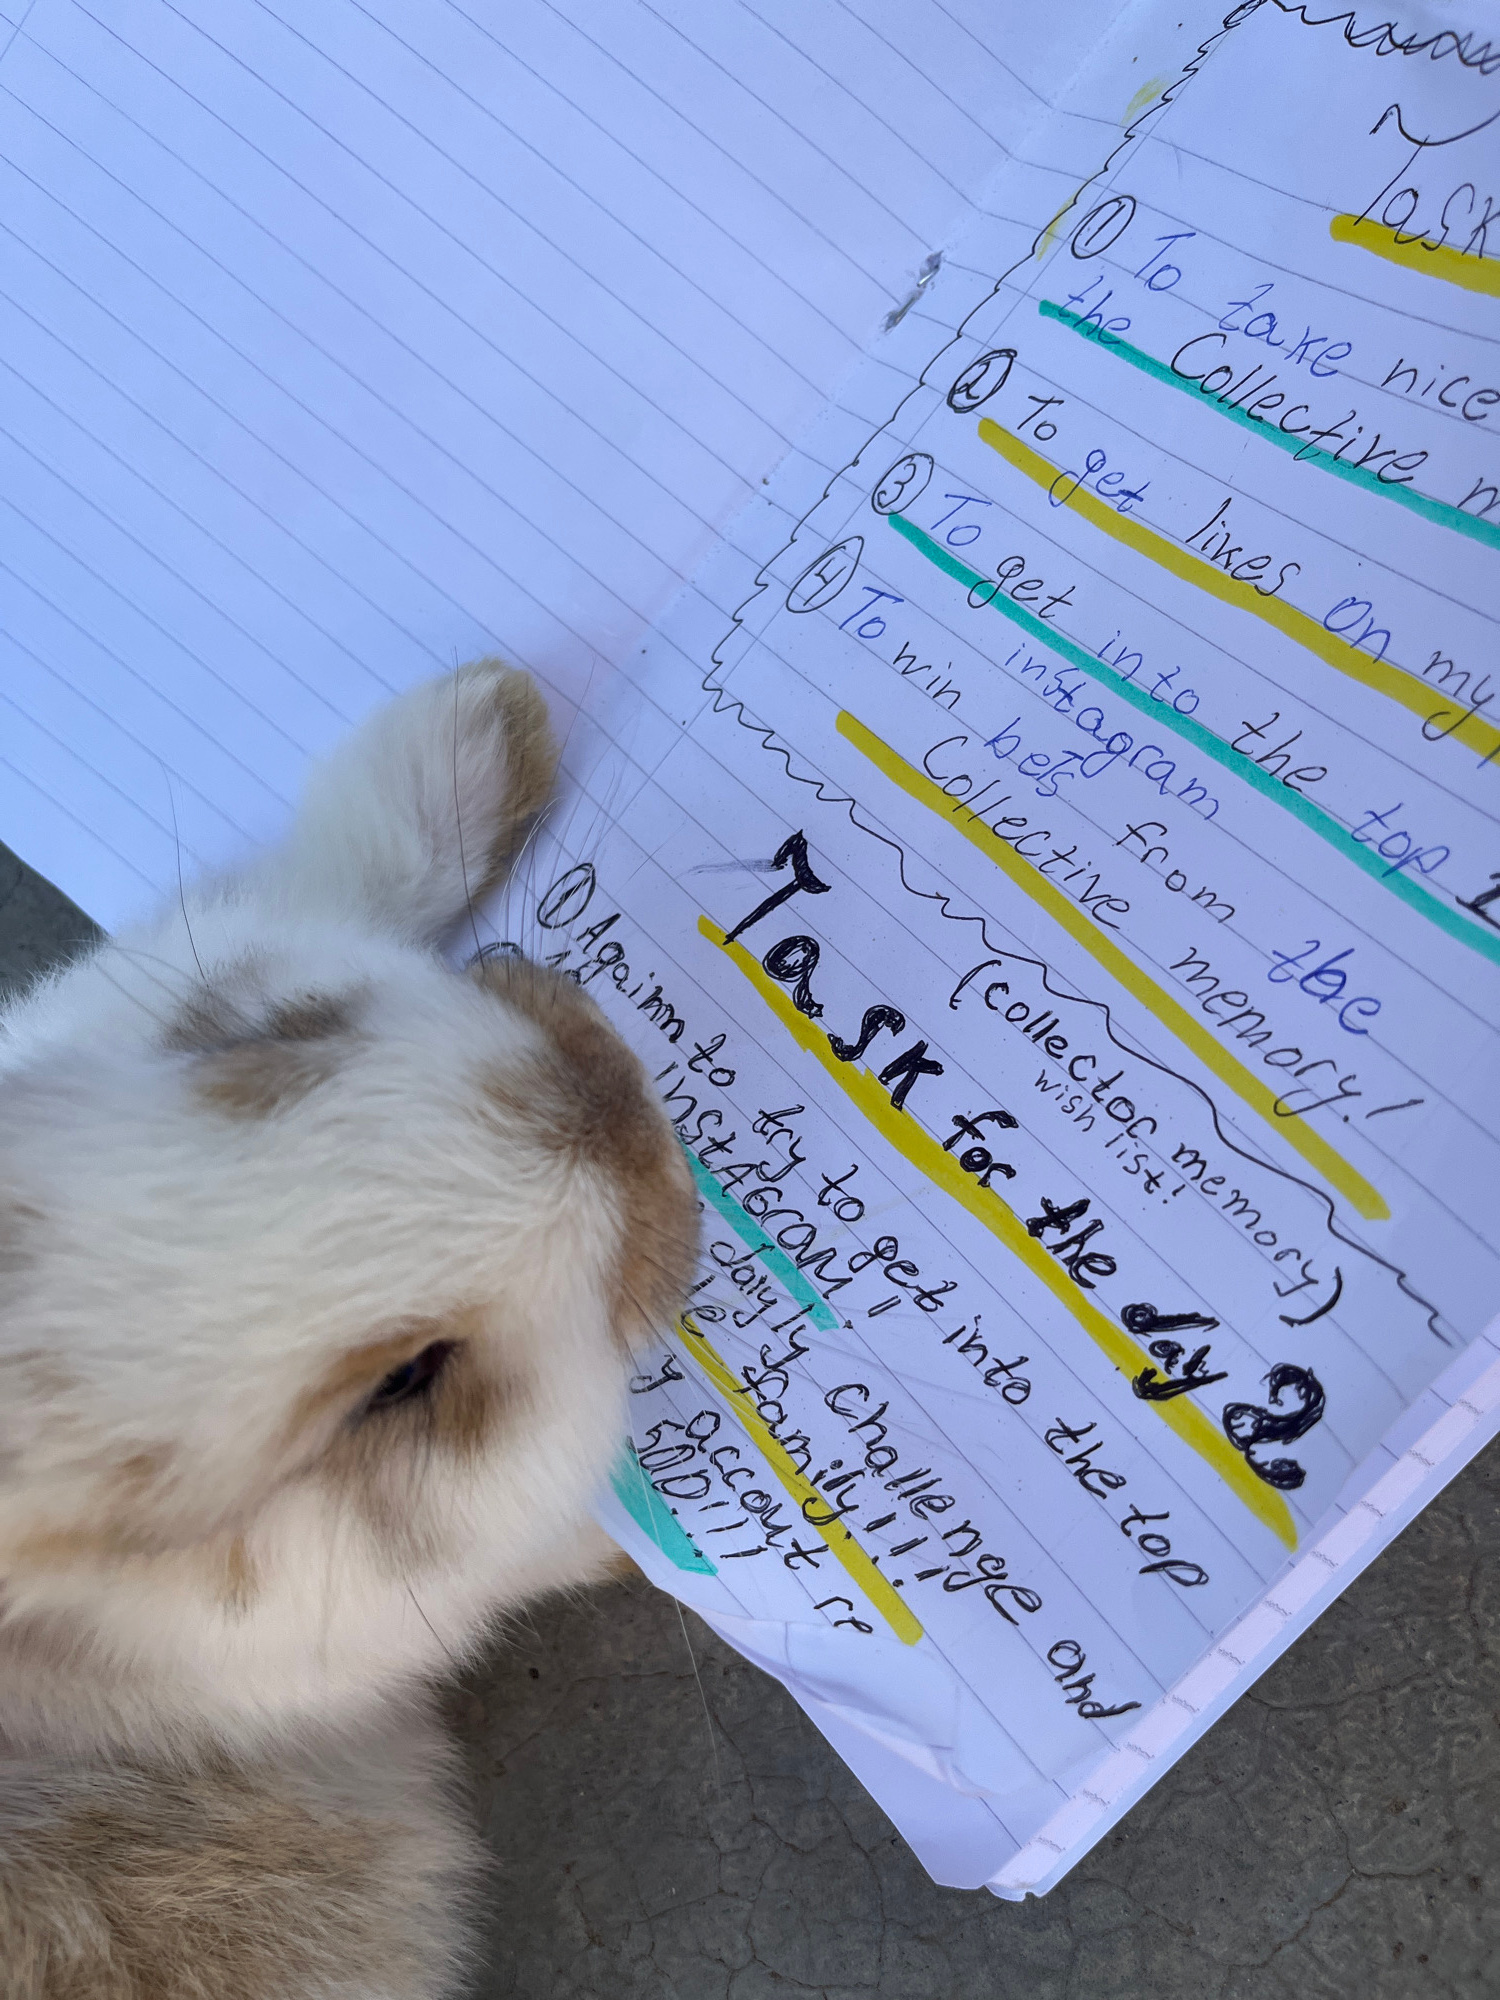 Task
① To take nice
the Collective m
② To get likes on my
③ To get into the top 1
instagram
④ To win bets from the
Collective memory!
Task for the day 2
(collector memory)
wish list!
① Againn to try to get into the top
InstAGram!!
dayly challenge and
family!!!
y account re
500!!!